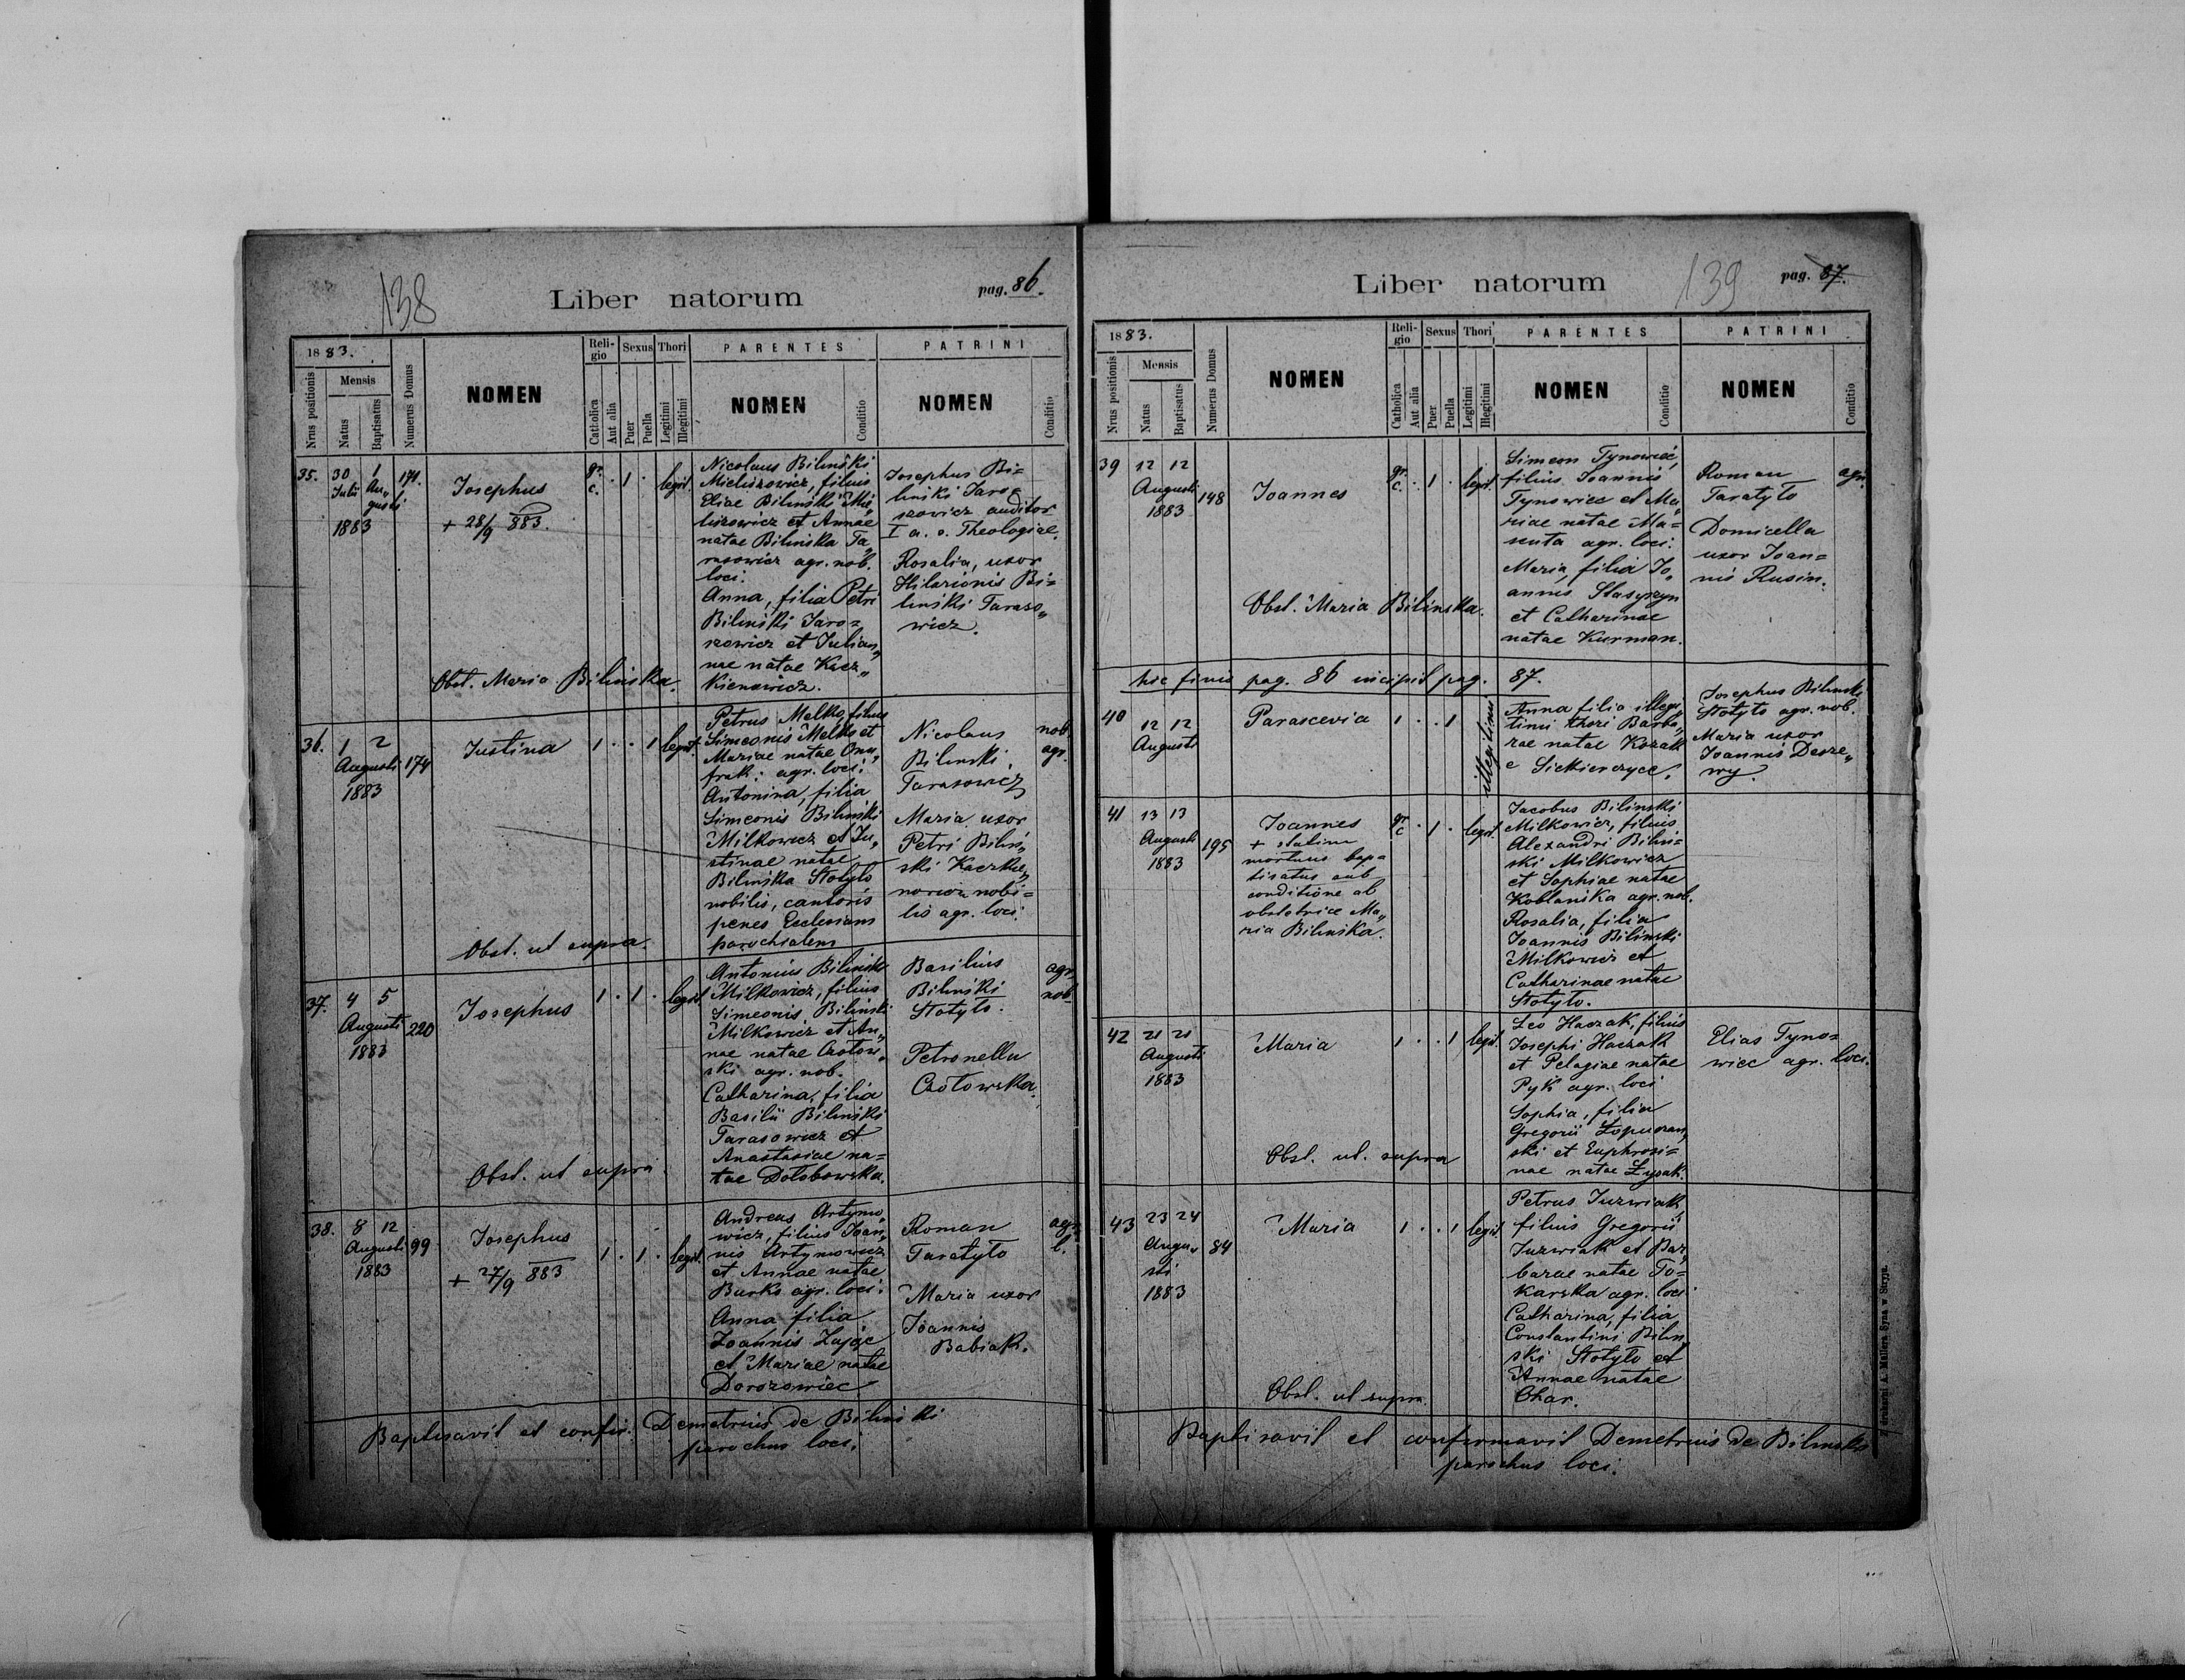 138
Liber natorum
pag. 86.
1883.
Nrus positionis
Mensis
Natus
Baptisatus
Numerus Domus
NOMEN
Religio
Catholica
Aut alia
Sexus
Puer
Puella
Thori
Legitimi
Illegitimi
PARENTES
NOMEN
Conditio
PATRINI
NOMEN
Conditio
35.
30 1
Julii Au„
gusti
1883
171.
Josephus
+ 28/9 883.
gr.
c. . 1 . legit.
Nicolaus Biliński
filius
Eliae Biliński
et Annae
natae Bilinska Ta„
rasowicz agr. nob.
loci.
Anna, filia Petri
Biliński Jaro=
szowicz et Julian„
nae natae Kacz„
kienowicz.
Josephus Bi=
linski Jaro=
szowicz auditor
I a. s. Theologiae.
Rosalia, uxor
Hilarionis Bi=
linski Taraso„
wicz.
Obst. Maria Bilinska.
36.
1 2
Augusti
1883
174
Justina
1 . . 1 legit.
Petrus Melko, filius
Simeonis Melko et
Mariae natae Onu„
frak: agr. loci.
Antonina, filia
Simeonis Biliński
Milkowicz et Ju„
stinae natae
Bilinska Stotyło
nobilis, cantoris
penes Ecclesiam
parochialem
Nicolaus
Bilinski
Tarasowicz
Maria uxor
Petri Biliń„
ski Kaczkie„
nowicz nobi=
lis agr. loci.
nob.
agr.
Obst. ut supra.
37.
4 5
Augusti
1883
220
Josephus
1 . 1 . legit.
Antonius Biliński
Milkowicz, filius
Simeonis Bilinski
Milkowicz et An„
nae natae
ski agr. nob.
Catharina, filia
Basilii Biliński
Tarasowicz et
Anastasiae na=
tae Dołobowska.
Basilius
Biliński
Stotyło.
Petronella
Czołowska.
agr.
nob.
Obst. ut supra.
38.
8 12
Augusti
1883
99
Josephus
+ 27/9 883
1 . 1 . legit.
Andreas Artymo„
wicz, filius Joan„
nis Artymowicz
et Annae natae
Burko agr. loci.
Anna filia
Joannis Zając
et Mariae natae
Dorozowiec
Roman
Taratyło
Maria uxor
Joannis
Babiak.
agr.
l.
Baptisavit et confir. Demetrius de Biliński
parochus loci.
Liber natorum
139
pag. 87.
1883.
Nrus positionis
Mensis
Natus
Baptisatus
Numerus Domus
NOMEN
Religio
Catholica
Aut alia
Sexus
Puer
Puella
Thori
Legitimi
Illegitimi
PARENTES
NOMEN
Conditio
PATRINI
NOMEN
Conditio
39
12 12
Augusti
1883
148
Joannes
gr.
c. . 1 . legit.
Simeon Tynowiec,
filius Joannis
Tynowiec et Ma„
riae natae Ma=
senta agr. loci.
Maria, filia Jo„
annis Stasyszyn
et Catharinae
natae Kurman.
Roman
Taratyło
Domicella
uxor Joan=
nis Rusin.
agr.
Obst. Maria Bilinska.
hic finis pag. 86 incipit pag. 87.
40
12 12
Augusti
Parascevia
1 . . 1
illegitimi
Anna filia illegi„
timi thori Barba„
rae natae Kozak
e Siekierczyce.
Josephus Bilinski
Stotyło agr. nob.
Maria uxor
Joannis Desze„
wy.
41
13 13
Augusti
1883
195
Joannes
+ statim
mortuus bap=
tisatus sub
conditione ab
obstetrice Ma„
ria Bilinska.
gr.
c . 1 . legit.
Jacobus Bilinski
Milkowicz, filius
Alexandri Bilin=
ski Milkowicz
et Sophiae natae
Koblanska agr. nob.
Rosalia, filia
Joannis Bilinski
Milkowicz et
Catharinae natae
Stotyło.
42
21 21
Augusti
1883
Maria
1 . . 1 legit.
Leo Haczak, filius
Josephi Haczak
et Pelagiae natae
Pyk agr. loci
Sophia, filia
Gregorii Łopuszan„
ski et Euphrosi=
nae natae Łysak.
Elias Tyno=
wiec agr. loci.
Obst. ut. supra
43
23 24
Augu„
sti
1883
84
Maria
1 . . 1 legit.
Petrus Juzwiak
filius Gregorii
Juzwiak et Bar„
barae natae To=
karska agr. loci
Catharina, filia
Constantini Bilin„
ski Stotyło et
Annae natae
Char.
Obst. ut supra.
Baptisavit et confirmavit Demetrius de Bilinski
parochus loci.
drukarni A. Müllera Syna w Stryju.